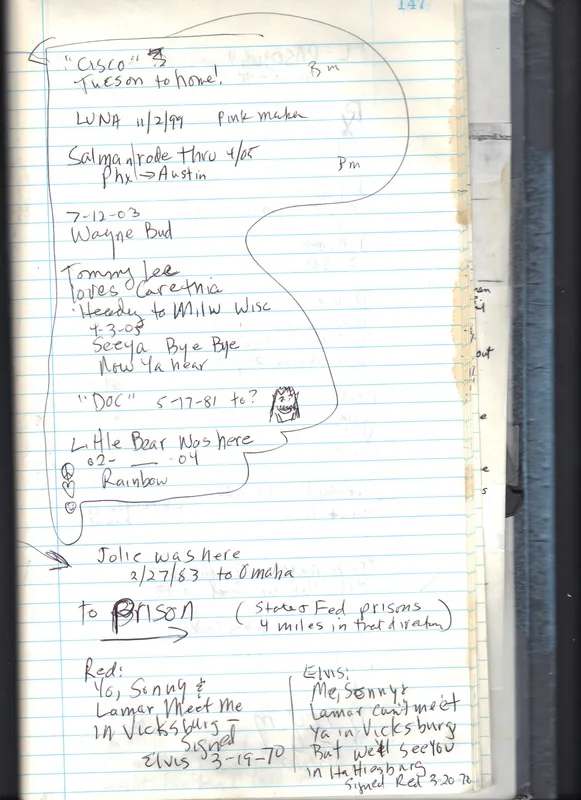 147
"CISCO"
Tucson to home!
Bm
LUNA 11/2/99 Pink maker
Salman rode thru 4/05
Phx → Austin
Bm
7-12-03
Wayne Bud
Tommy Lee
loves Carethia
Heedy to Milw Wisc
4-3-05
Seeya Bye Bye
Now Ya hear
"Doc" 5-17-81 to?
Little Bear Was here
02- __ -04
Rainbow
Jolie was here
2/27/83 to Omaha
to Prison (State & Fed prisons
4 miles in that direction)
Red:
Yo, Sonny &
Lamar Meet Me
IN Vicksburg –
Signed
Elvis 3-19-70
Elvis:
Me, Sonny &
Lamar can't meet
Ya in Vicksburg
But we'll see you
in Hattiesburg
Signed Red 3-20-70
out
e
e
s